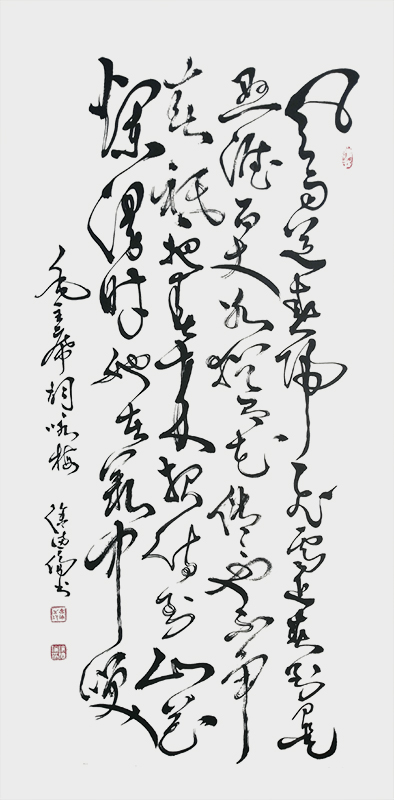 风雨送春归飞雪迎春到已是
悬涯百丈冰犹有花俏也不争
春祇把春来报待到山花
烂漫时她在丛中笑
毛主席词咏梅 徐德书